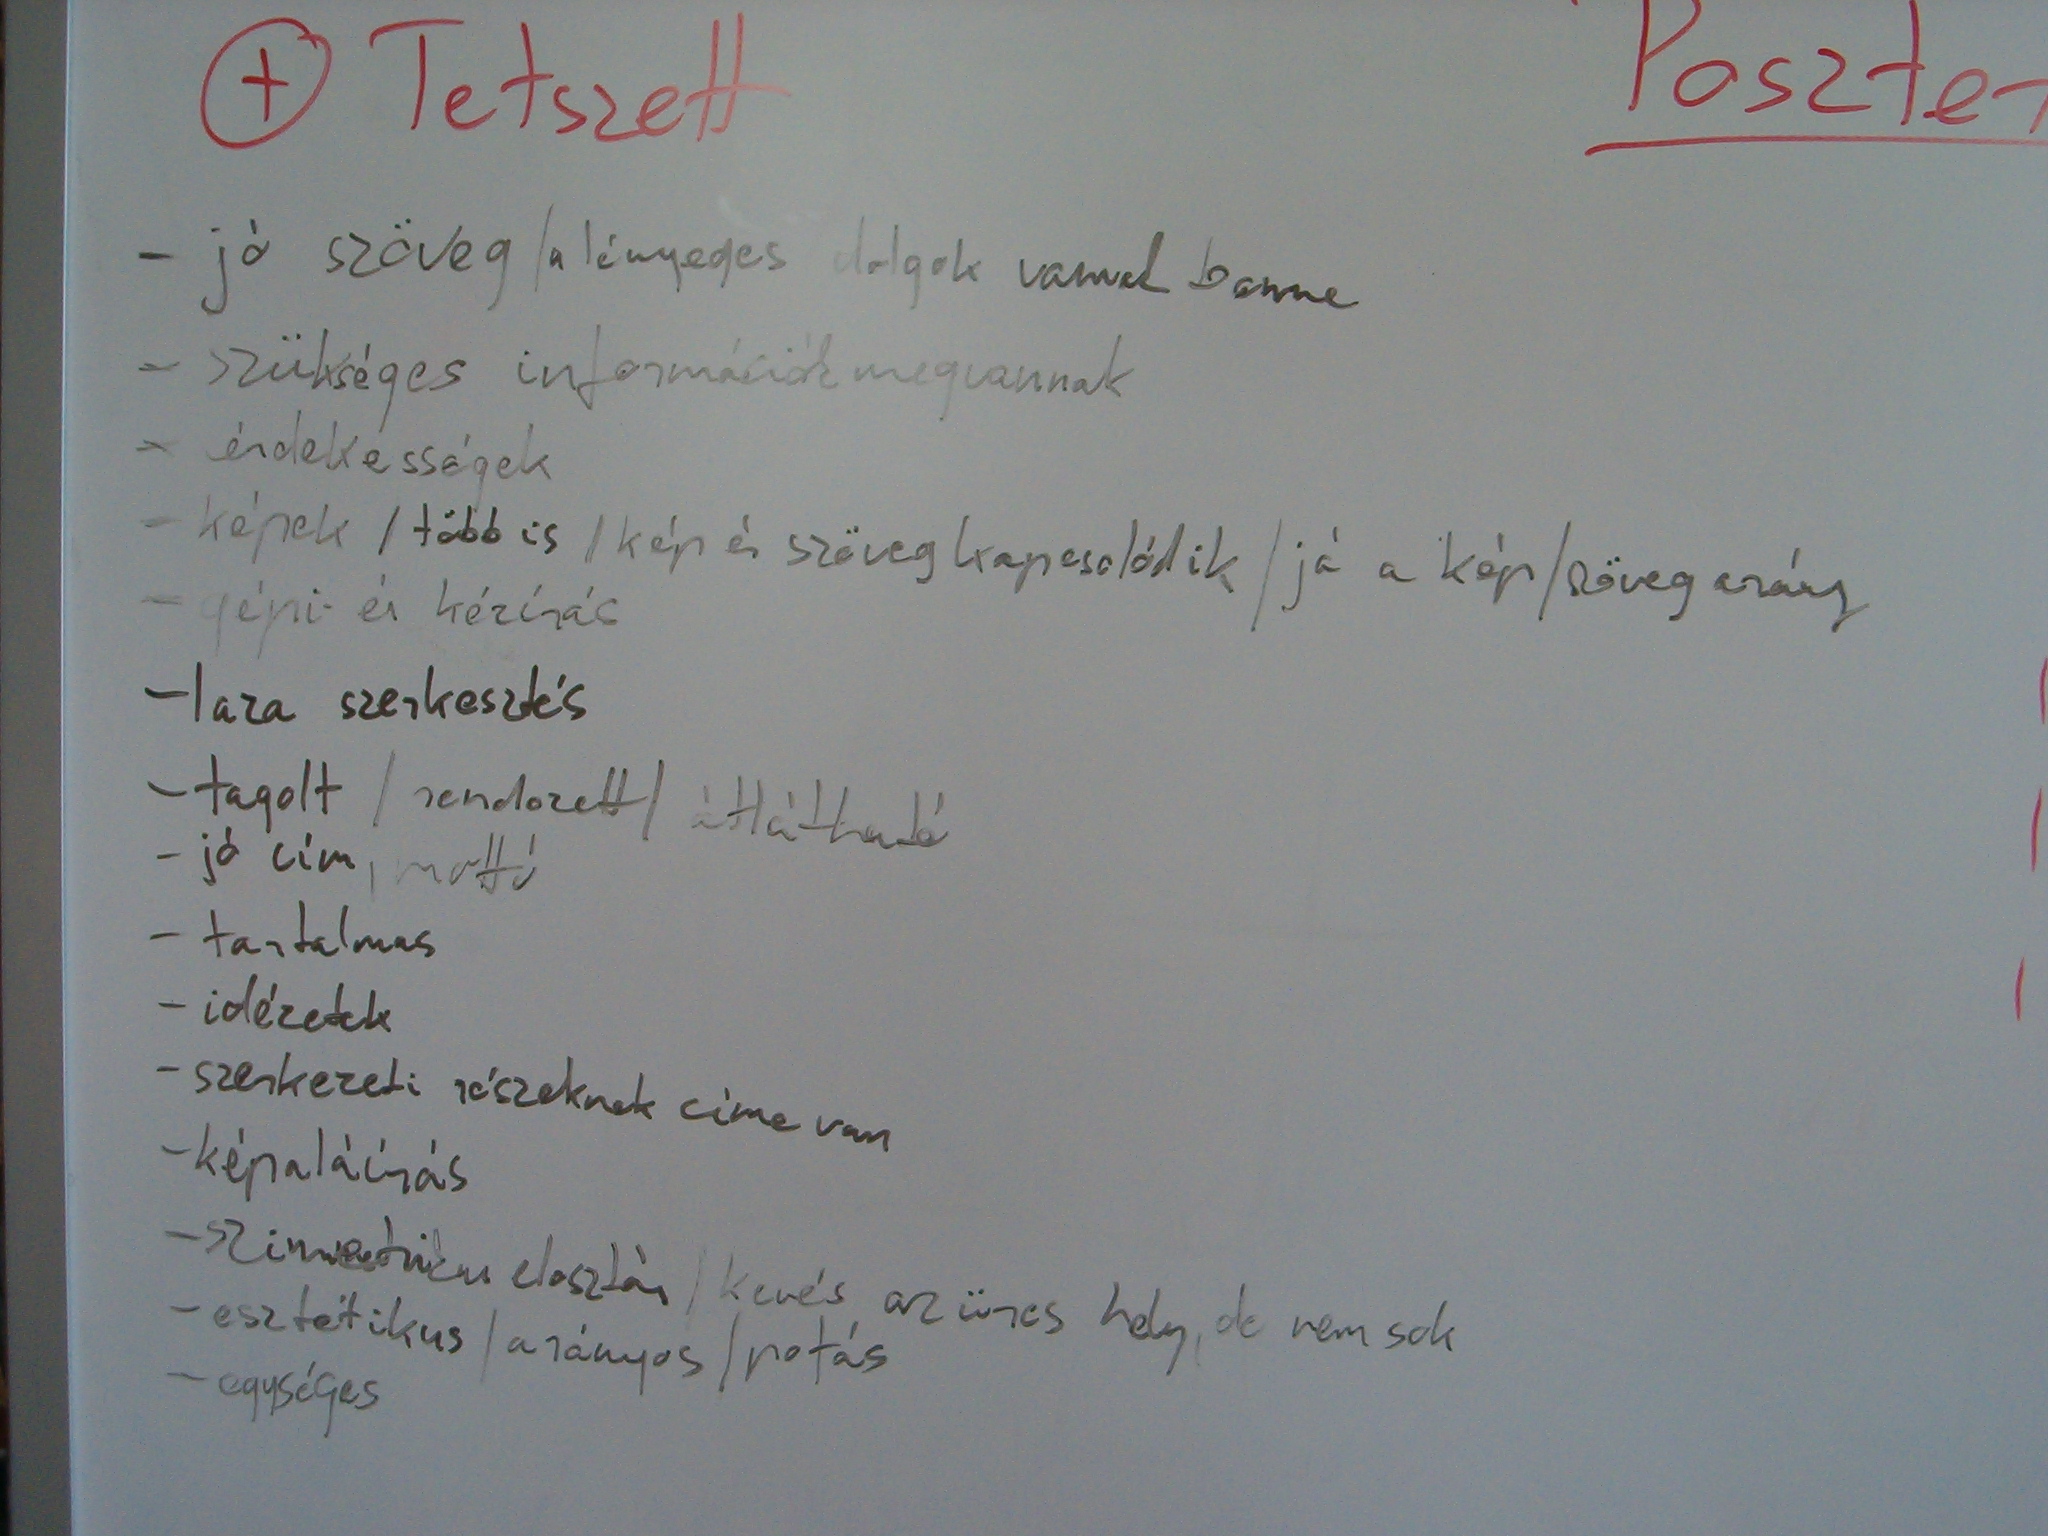 + Tetszett
Poszter
- jó szöveg / a lényeges dolgok vannak benne
- szükséges információk megvannak
- érdekességek
- képek / több is / kép és szöveg kapcsolódik / jó a kép/szöveg arány
- gépi- és kézírás
- laza szerkesztés
- tagolt / rendezett / átlátható
- jó cím, mottó
- tartalmas
- idézetek
- szerkezeti részeknek címe van
- képaláírás
- szimmetrikus elosztás / kevés az üres hely, de nem sok
- esztétikus / arányos / potás
- egységes